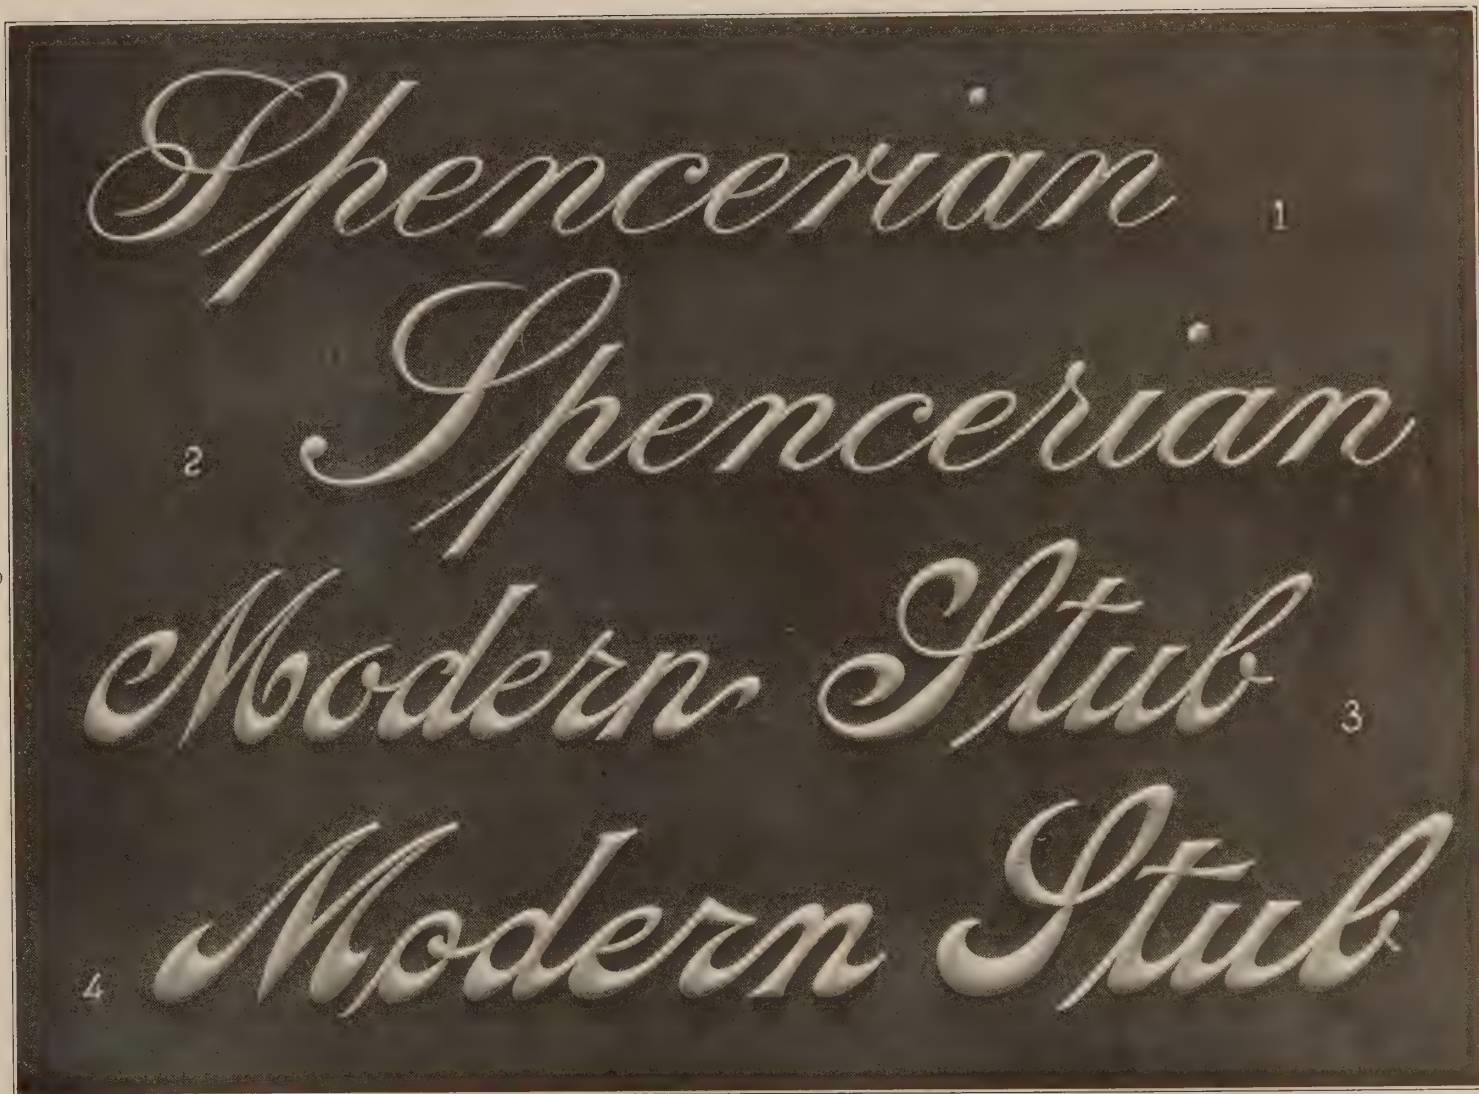 Spencerian 1
2 Spencerian
Modern Stub 3
4 Modern Stub